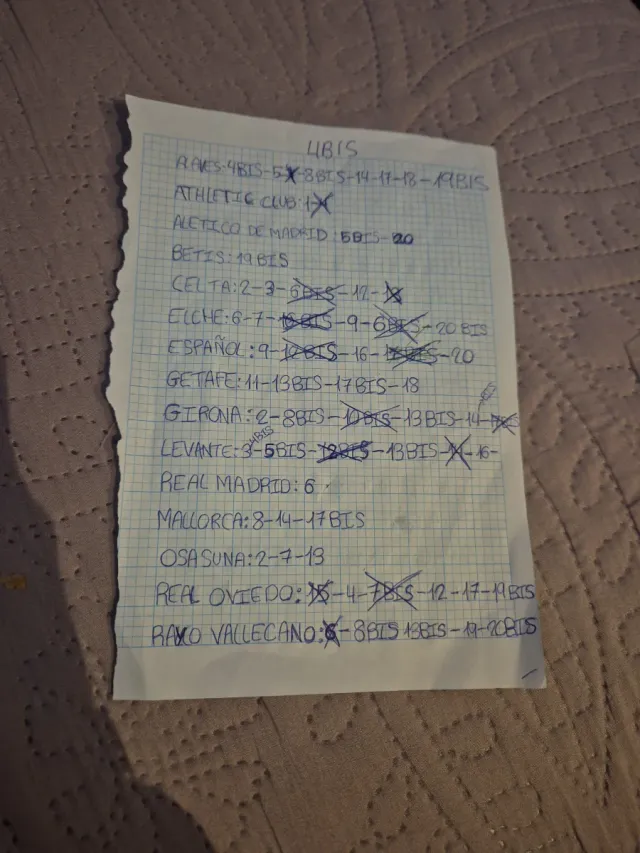 4BIS
ALAVES:4BIS-5-8BIS-14-17-18-19BIS
ATHLETIC CLUB:1-
ALETICO DE MADRID:5BIS-20
BETIS:19BIS
CELTA:2-3-6BIS-12-
ELCHE:6-7-16BIS-9-6BIS-20BIS
ESPAÑOL:9-12BIS-16-20
GETAFE:11-13BIS-17BIS-18
GIRONA:2-8BIS-10BIS-13BIS-14-
LEVANTE:3-4BIS-5BIS-12BIS-13BIS-16-
REAL MADRID:6
MALLORCA:8-14-17BIS
OSASUNA:2-7-19
REAL OVIEDO:15-4-7BIS-12-17-19BIS
RAYO VALLECANO:6-8BIS 13BIS-19-20BIS